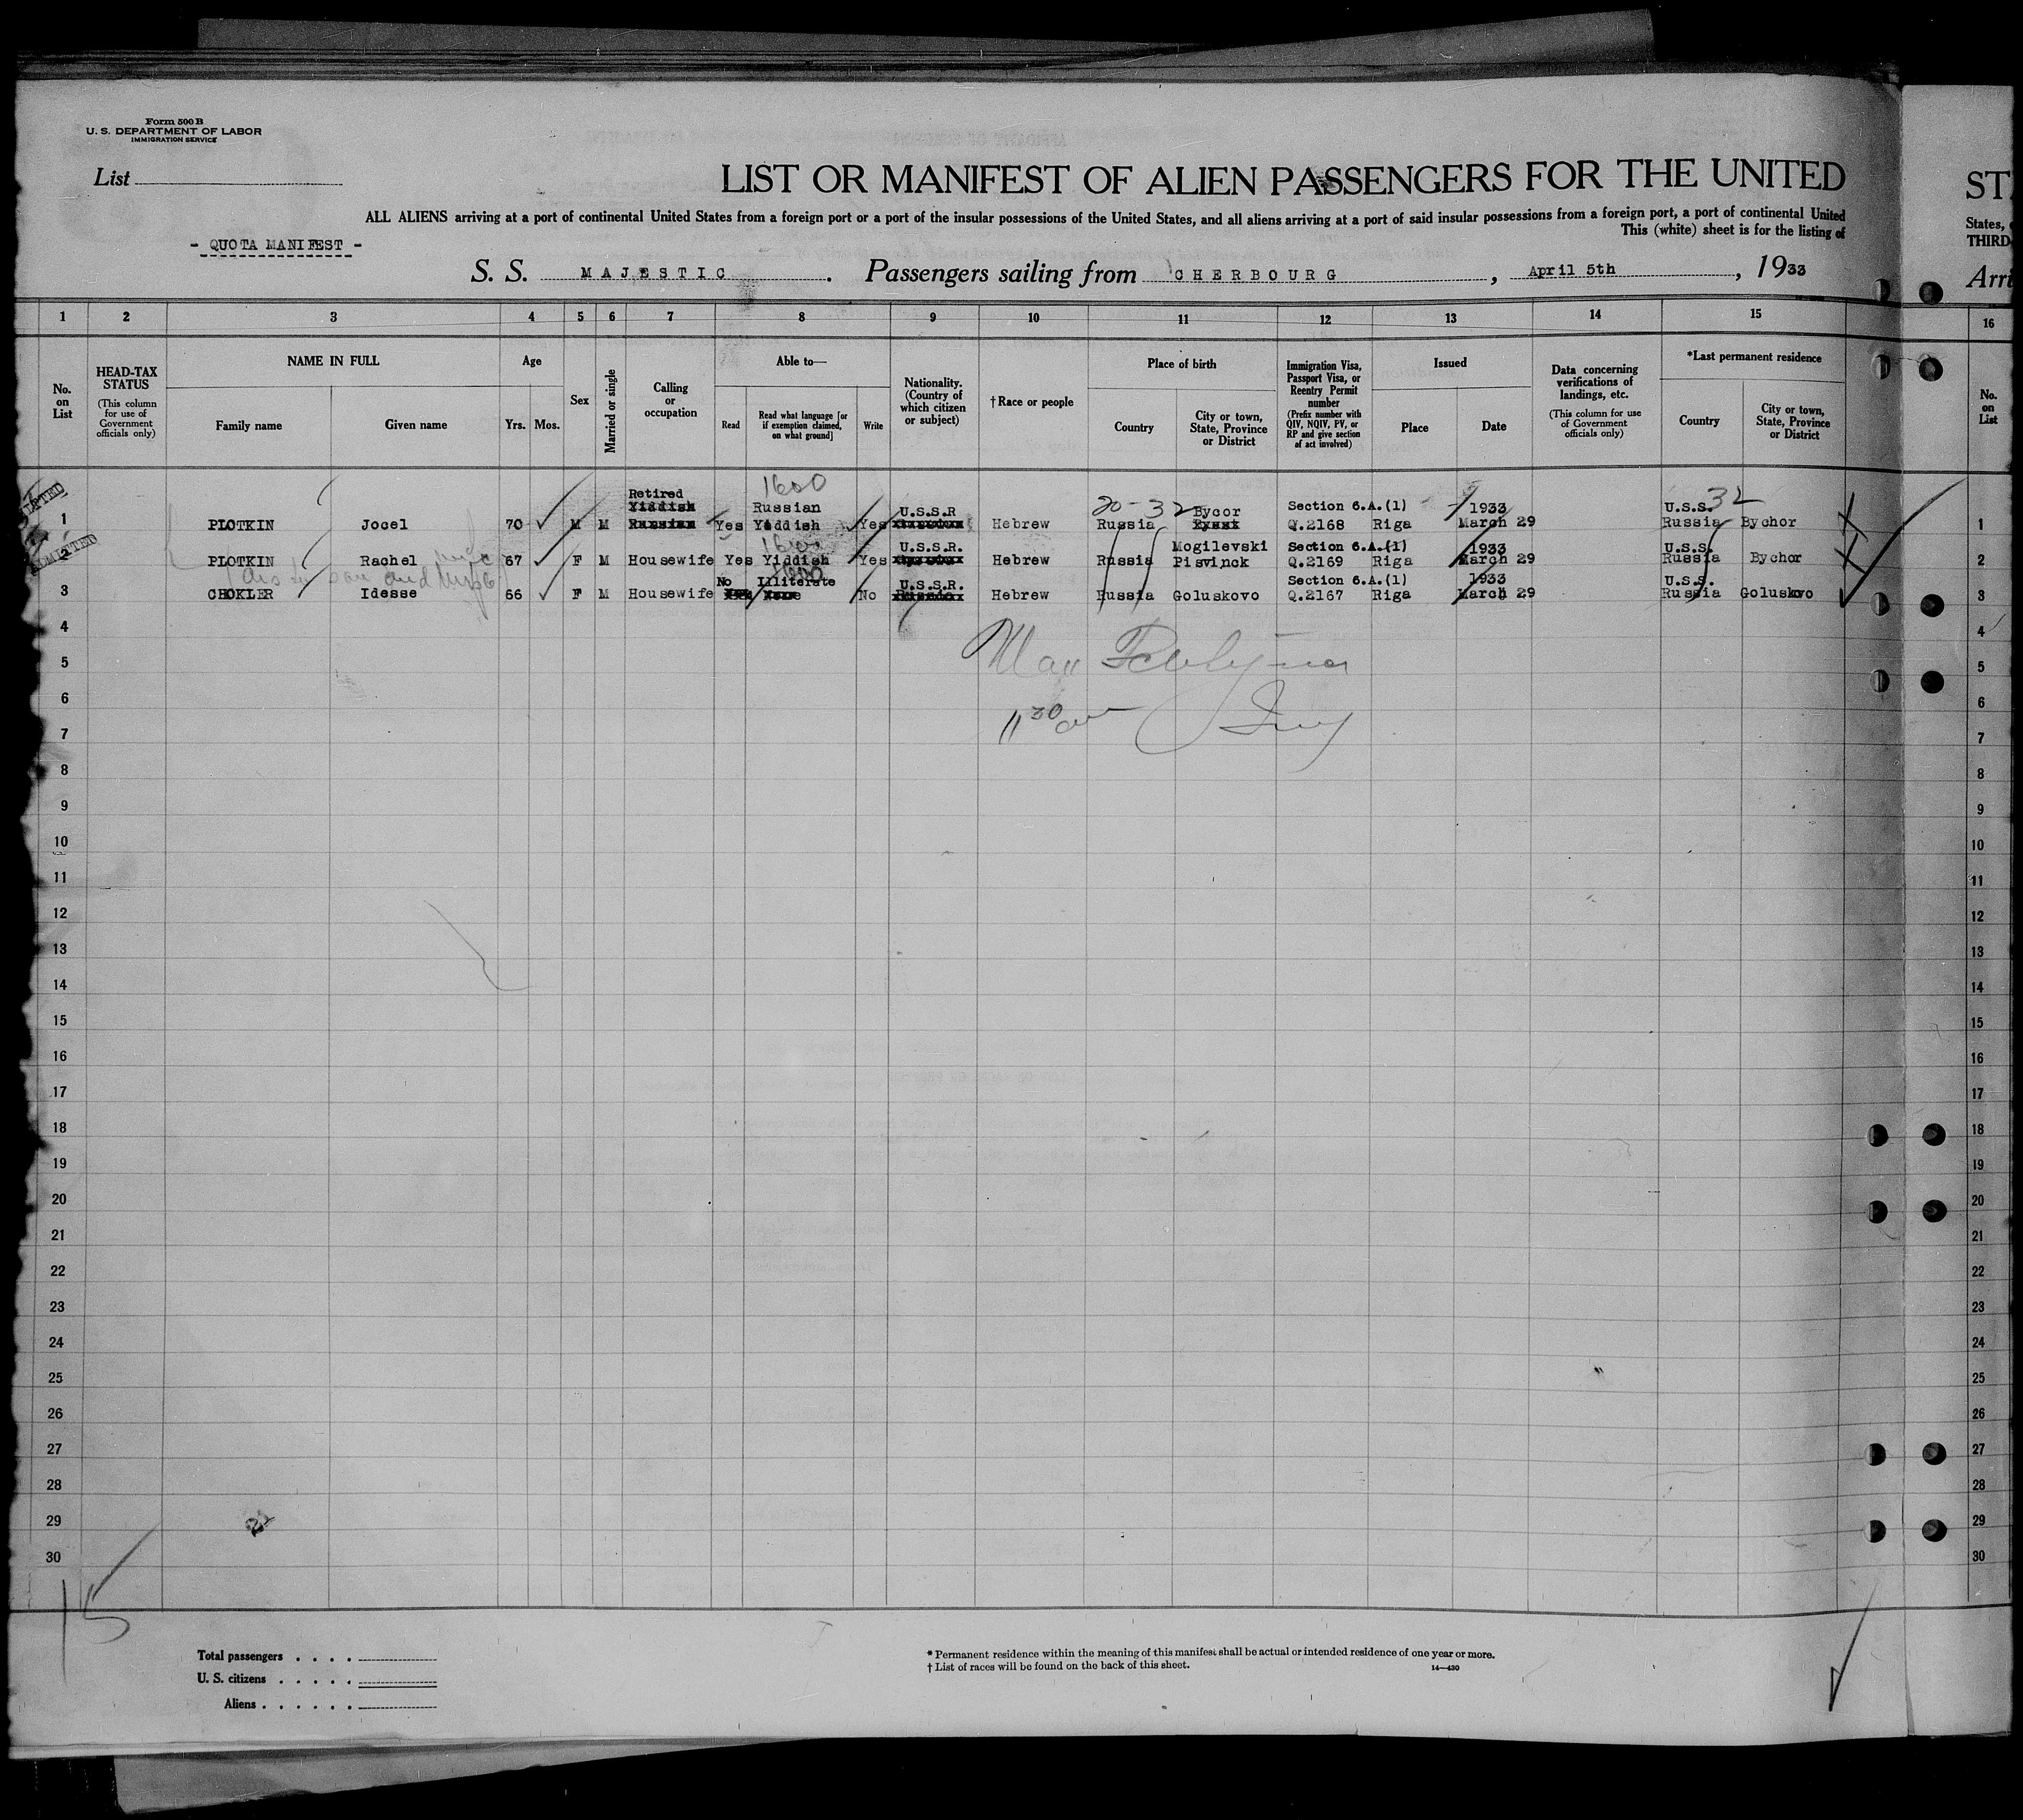 Form 500 B
U. S. DEPARTMENT OF LABOR
IMMIGRATION SERVICE
List
LIST OR MANIFEST OF ALIEN PASSENGERS FOR THE UNITED
ST
ALL ALIENS arriving at a port of continental United States from a foreign port or a port of the insular possessions of the United States, and all aliens arriving at a port of said insular possessions from a foreign port, a port of continental United
States,
This (white) sheet is for the listing of
THIRD-
- QUOTA MANIFEST -
S. S. MAJESTIC. Passengers sailing from CHERBOURG, April 5th, 1933
Arri
1 2 3 4 5 6 7 8 9 10 11 12 13 14 15 16
No. on List
HEAD-TAX STATUS
(This column for use of Government officials only)
NAME IN FULL
Family name
Given name
Age
Yrs. Mos.
Sex
Married or single
Calling or occupation
Able to—
Read
Read what language [or if exemption claimed, on what ground]
Write
Nationality. (Country of which citizen or subject)
† Race or people
Place of birth
Country
City or town, State, Province or District
Immigration Visa, Passport Visa, or Reentry Permit number
(Prefix number with QIV, NQIV, PV, or RP and give section of act involved)
Issued
Place
Date
Data concerning verifications of landings, etc.
(This column for use of Government officials only)
*Last permanent residence
Country
City or town, State, Province or District
No. on List
1600
Retired
Yiddish Russian 20-32 Bycor Section 6.A.(1) 1933 U.S.S. 32
U.S.S.R
1 PLOTKIN Jocel 70 M M Russian Yes Yiddish Yes Hebrew Russia Q.2168 Riga March 29 Russia Bychor 1
ADMITTED
1600 U.S.S.R. Mogilevski Section 6.A.(1) 1933 U.S.S.
2 PLOTKIN Rachel 67 F M Housewife Yes Yiddish Yes Hebrew Russia Pisvinck Q.2169 Riga March 29 Russia Bychor 2
1600
No Illiterate U.S.S.R. Section 6.A.(1) 1933 U.S.S.
3 CHOKLER Idesse 66 F M Housewife None No Russia Hebrew Russia Goluskovo Q.2167 Riga March 29 Russia Goluskovo 3
4 4
5 Max 5
6 6
7 11 30 am 7
8 8
9 9
10 10
11 11
12 12
13 13
14 14
15 15
16 16
17 17
18 18
19 19
20 20
21 21
22 22
23 23
24 24
25 25
26 26
27 27
28 28
29 21 29
30 30
15
Total passengers . . . .
U. S. citizens . . . . .
Aliens . . . . . .
* Permanent residence within the meaning of this manifest shall be actual or intended residence of one year or more.
† List of races will be found on the back of this sheet.
14—430